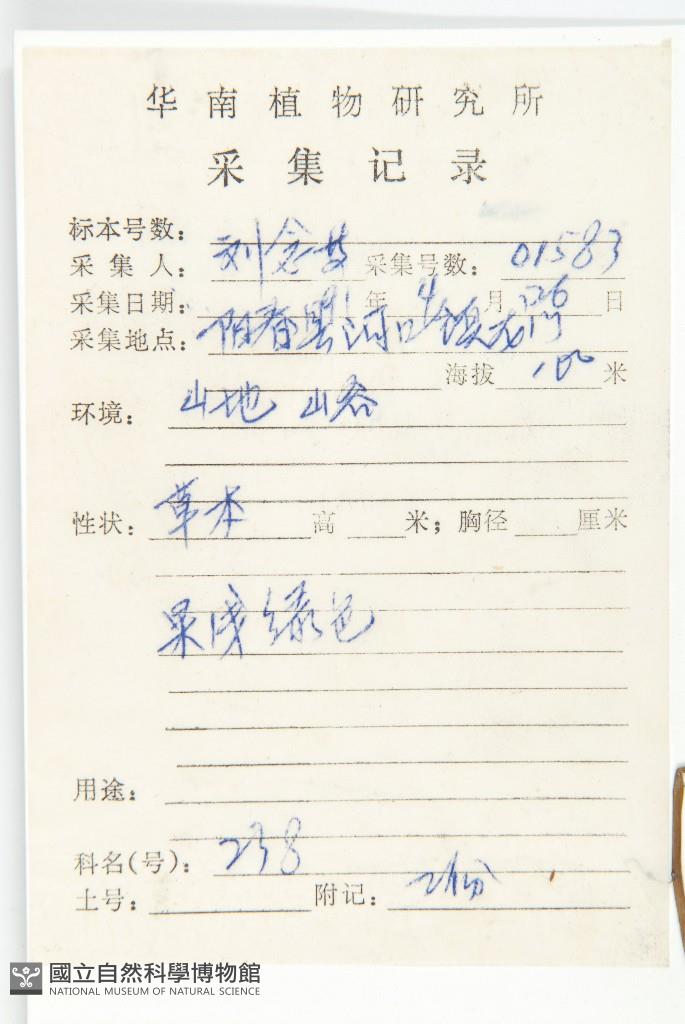 华南植物研究所
采集记录
标本号数:
采集人: 刘念 采集号数: 01583
采集日期: 年 4 月 26 日
采集地点: 阳春县河口镇龙门
海拔 100 米
环境: 山地 山谷
性状: 草本 高 米; 胸径 厘米
果浅绿色
用途:
科名(号): 238
土号: 附记: 2份
國立自然科學博物館
NATIONAL MUSEUM OF NATURAL SCIENCE